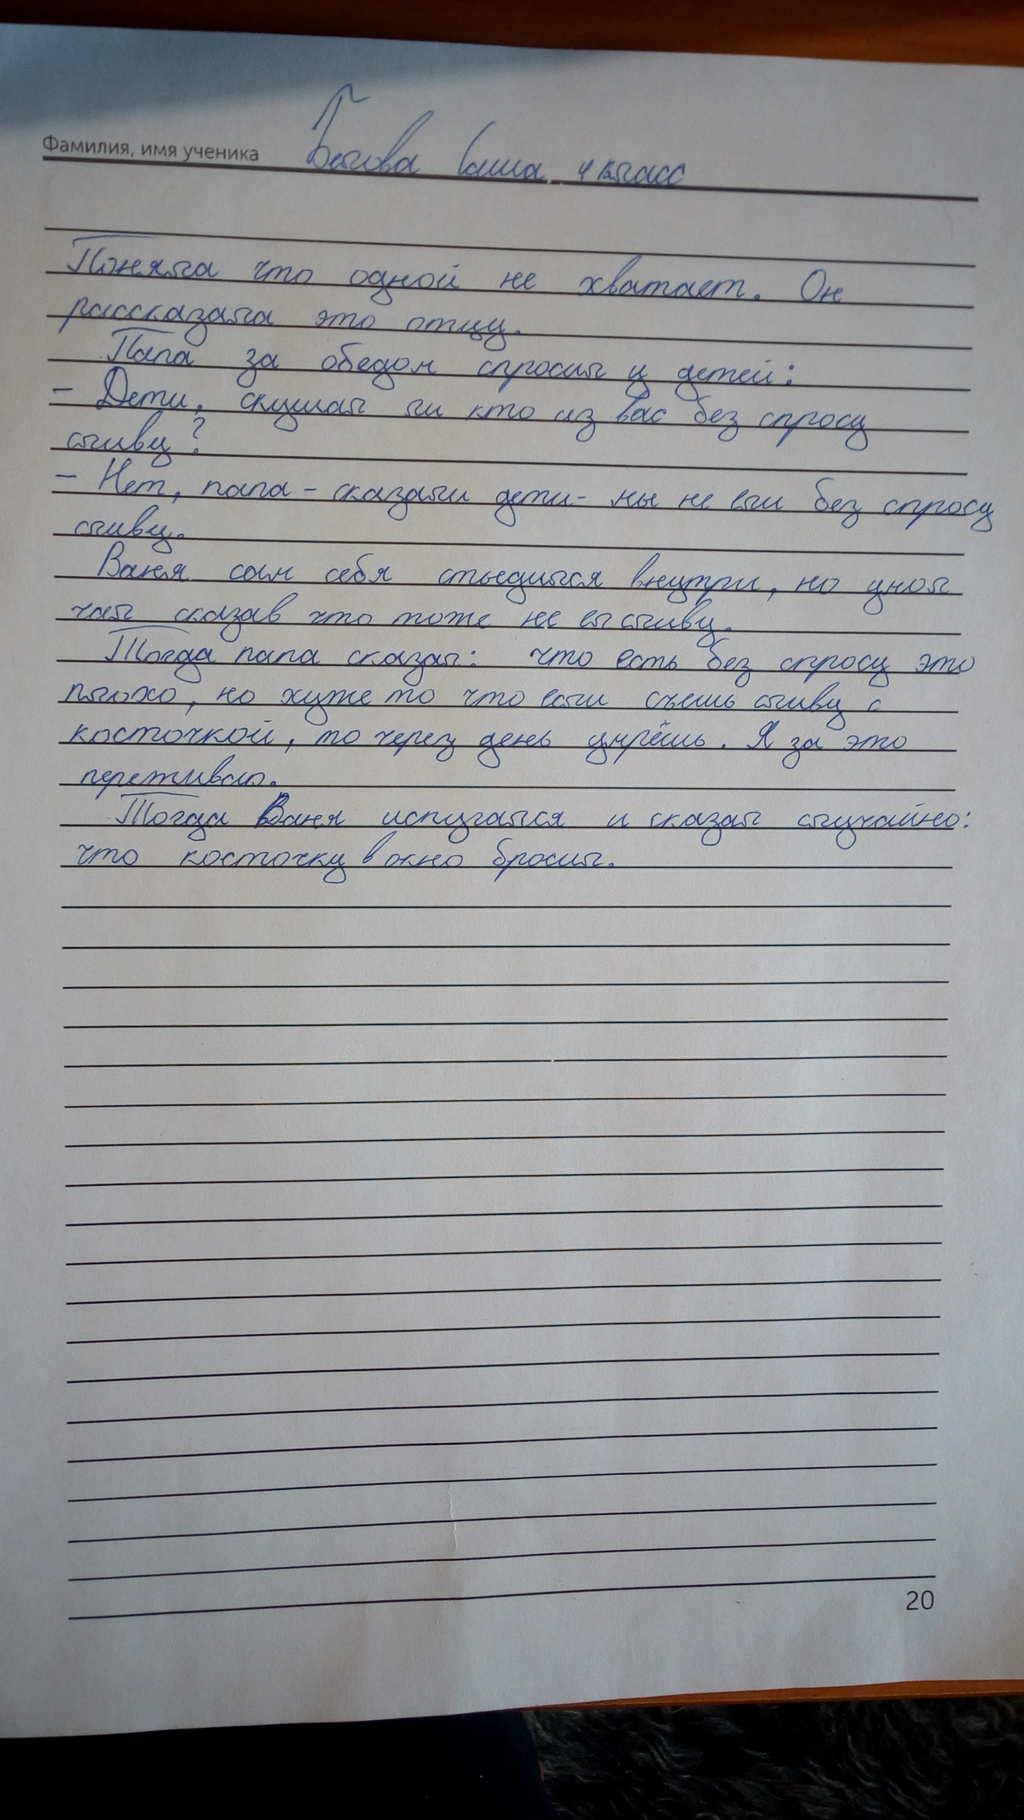 Фамилия, имя ученика Белова Саша 4 класс
Поняла что одной не хватает. Он
рассказала это отцу.
Папа за обедом спросил у детей:
- Дети, скушал ли кто из вас без спросу
сливу?
- Нет, папа - сказали дети - мы не ели без спросу
сливу.
Ваня сам себя стыдился внутри, но умол
чал сказав что тоже не ел сливу.
Тогда папа сказал: что есть без спросу это
плохо, но хуже то что если съешь сливу с
косточкой, то через день умрёшь. Я за это
переживаю.
Тогда Ваня испугался и сказал случайно:
что косточку в окно бросил.
20